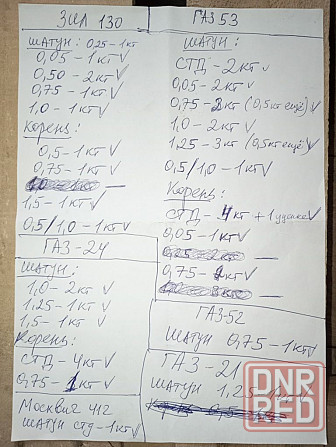 ЗИЛ 130
ШАТУН: 0,25 - 1кт
0,05 - 1кт V
0,50 - 2кт V
0,75 - 1кт V
1,0 - 1кт V
Корень:
0,5 - 1кт V
0,75 - 1кт V
1,5 - 1кт V
0,5/1,0 - 1кт V
ГАЗ-24
ШАТУН:
1,0 - 2кт V
1,25 - 1кт V
1,5 - 1кт V
Корень:
СТД - 4кт V
0,75 - 1кт V
Москвич 412
ШАТУН СТД - 1кт V
ГАЗ 53
ШАТУН:
СТД - 2кт V
0,05 - 2кт V
0,75 - 3кт (0,5кт ещё) V
1,0 - 2кт V
1,25 - 3кт (0,5кт ещё) V
0,5/1,0 - 1кт V
Корень:
СТД - 4кт + 1 V
0,05 - 1кт V
0,25 - 2кт
0,75 - 1кт V
ГАЗ-52
ШАТУН 0,75 - 1кт V
ГАЗ-21
ШАТУН 1,25 -
Корень 0,5
DNR
BED